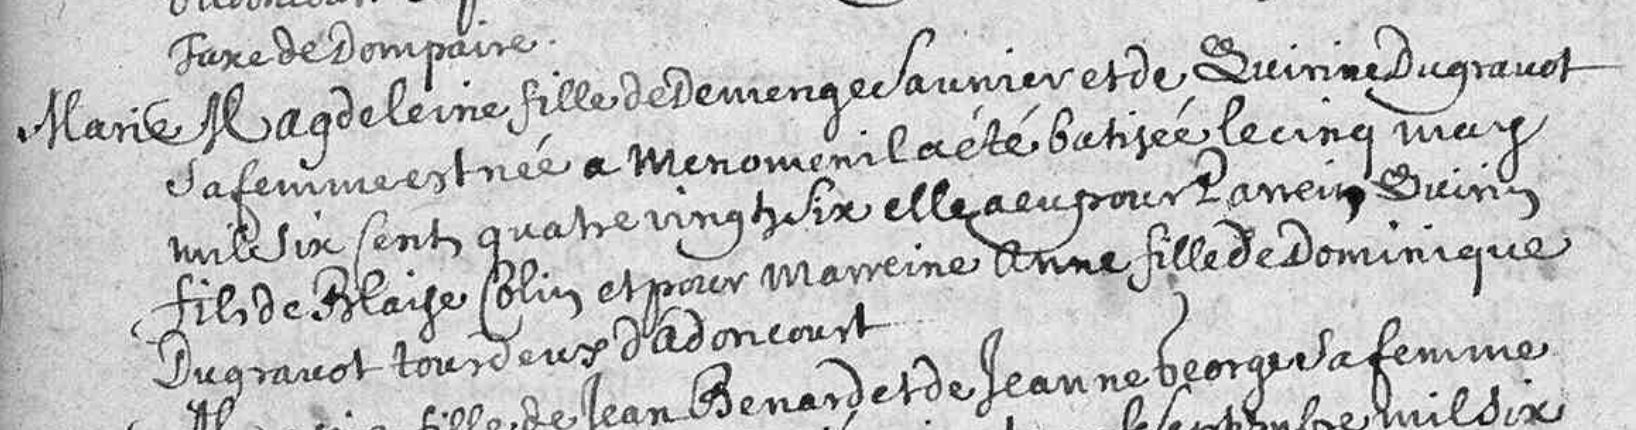 Juxe de Dompaire.
Marie Magdeleine fille de Demenge Saunier et de Quirine Dugravot
Sa femme est née a Menomenil a été batisée le cinq may
mil six cent quatre vingt six elle a eu pour Parrein Quirin
fils de Blaise Colin et pour marreine Anne fille de Dominique
Dugravot tous deux d'adoncourt
fille de Jean Benard et de Jeanne George Sa femme
mil six